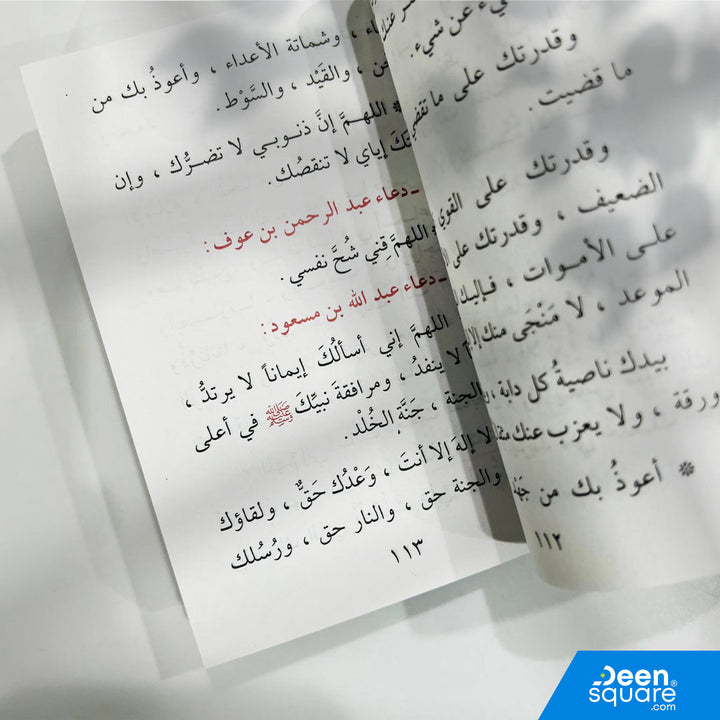 يء عن شيء.
وقدرتك على ما تقضي
ما قضيت.
وقدرتك على القوي
الضعيف ، وقدرتك على
على الأموات ، فإليك
الموعد ، لا مَنْجَى منك إلا
بيدك ناصيةُ كل دابة ،
ورقة ، ولا يعزب عنك
* أعوذُ بك من
١١٢
، وشماتة الأعداء ، وأعوذُ بك من
، والقَيْد ، والسَّوْط.
* اللهمَّ إنَّ ذنوبي لا تضرُّك ، وإن
إياي لا تنقصُك.
ـ دعاء عبد الرحمن بن عوف :
* اللهمَّ قِني شُحَّ نفسي.
ـ دعاء عبد الله بن مسعود :
اللهمَّ إني أسألُكَ إيماناً لا يرتدُّ ،
لا ينفدُ ، ومرافقةَ نبيِّكَ ﷺ في أعلى
الجنة ، جَنَّةِ الخُلْد.
لا إلهَ إلا أنتَ ، وَعْدُك حَقٌّ ، ولقاؤك
والجنة حق ، والنار حق ، ورُسُلك
١١٣
Deen
square®
.com